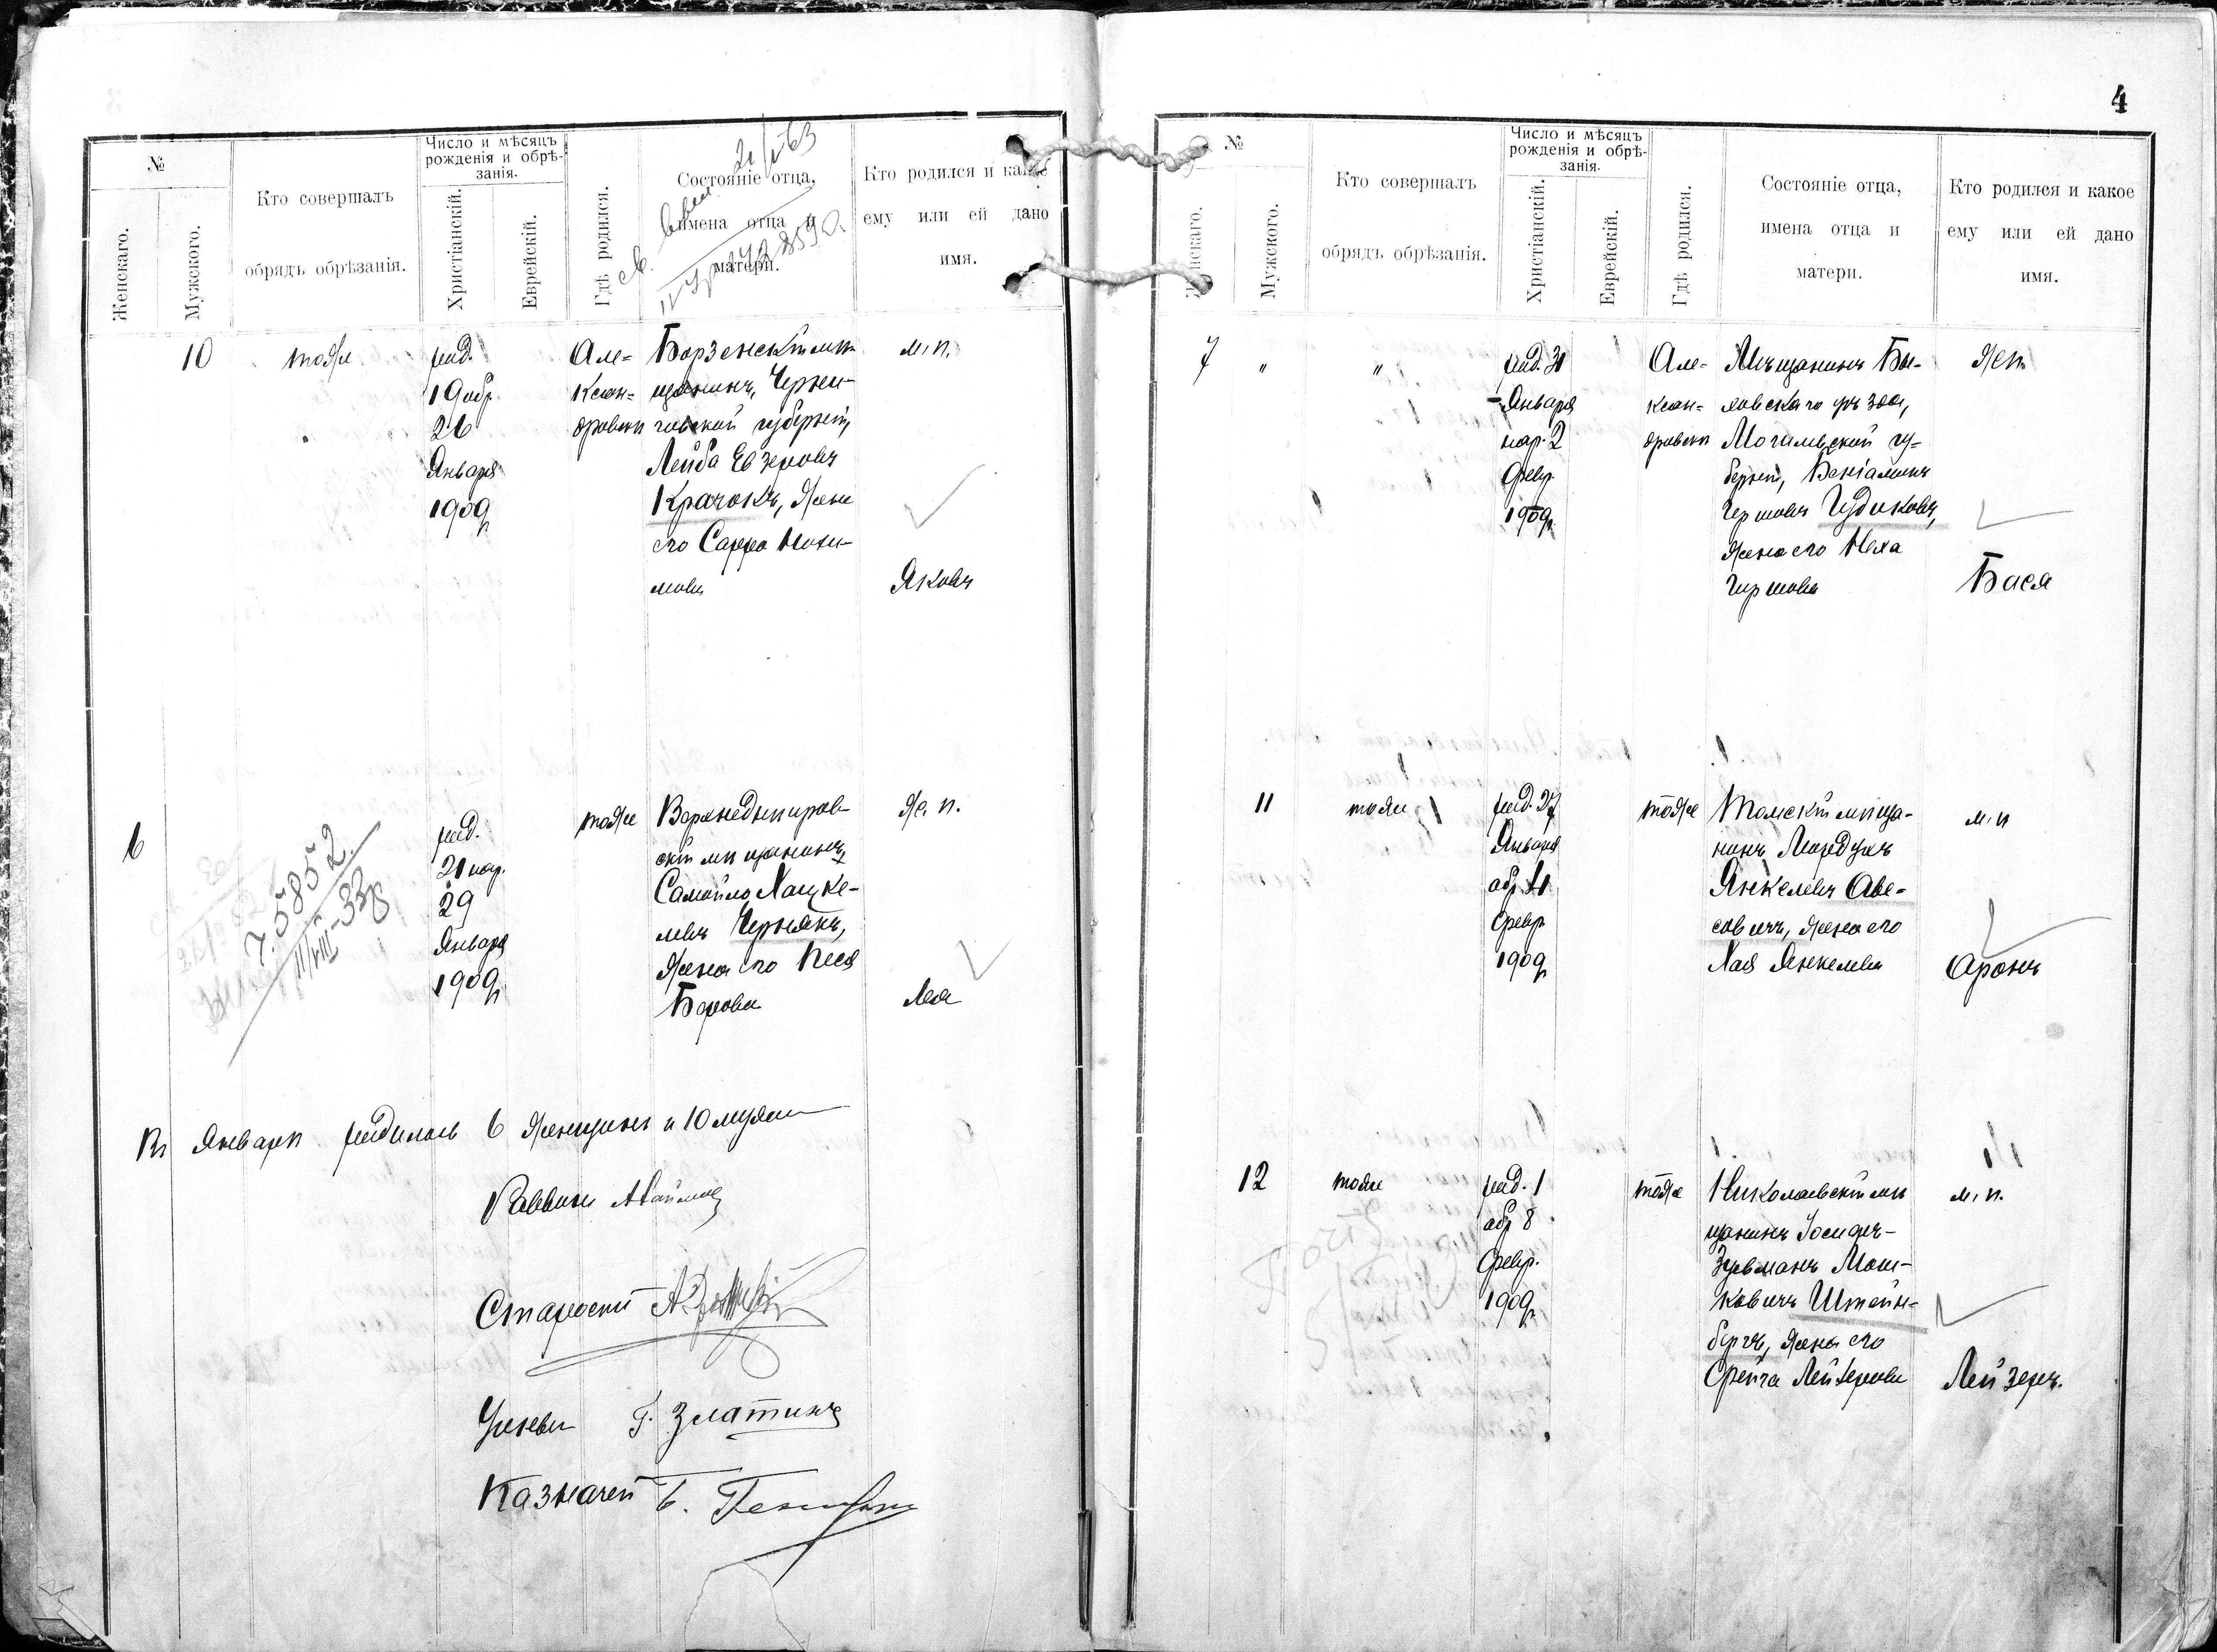 4
№
Женскаго.
Мужского.
Кто совершалъ
обрядъ обрѣзанія.
Число и мѣсяцъ
рожденія и обрѣ-
занія.
Христіанскій.
Еврейскій.
Гдѣ родился.
Состояніе отца,
имена отца и
матери.
Кто родился и какое
ему или ей дано
имя.
21/I 63
10
тоже
рид.
19 обр.
26
Января
1909 г.
Але=
ксан=
дровск
Борзенскій мѣ-
щанинъ, Черни-
говской губерніи,
Лейба Евзеровъ
Крачокъ, жена
его Сарра
мова
м. п.
Яковъ
6
7.5852
11/VIII-33
рид.
21 нар.
29
Января
1909 г.
тоже
Верхнеднѣпров-
скій мѣщанинъ
Самойло Хацке-
левъ Чернякъ,
жена его Песя
Берова
ж. п.
Лея
Въ Январѣ родилось 6 женщинъ и 10 мужч
Раввинъ
Староста
Ученый Г. Златинъ
Казначей Б.
№
Женскаго.
Мужского.
Кто совершалъ
обрядъ обрѣзанія.
Число и мѣсяцъ
рожденія и обрѣ-
занія.
Христіанскій.
Еврейскій.
Гдѣ родился.
Состояніе отца,
имена отца и
матери.
Кто родился и какое
ему или ей дано
имя.
7
"
"
рид. 31
Января
нар. 2
Февр.
1909 г.
Але-
ксан=
дровск
Мѣщанинъ Бы-
ховскаго уѣзда,
Могилевской гу-
берніи, Веніаминъ
Гершовъ Чудиковъ,
жена его Неха
Гиршова
жен.
Бася
11
тоже
рид. 27
Января
обр. 11
Февр.
1909 г.
тоже
Томскій мѣща-
нинъ Мордухъ
Янкелевъ Аве-
совичъ, жена его
Хая Янкелева
м. п
Аронъ
12
тоже
рид. 1
обр 8
Февр.
1909 г.
тоже
Николаевскій мѣ
щанинъ Іосифъ-
Зусьманъ Мош-
ковичъ Штейн=
бергъ, жена его
Фейга Лейзерова
м. п.
Лейзеръ.